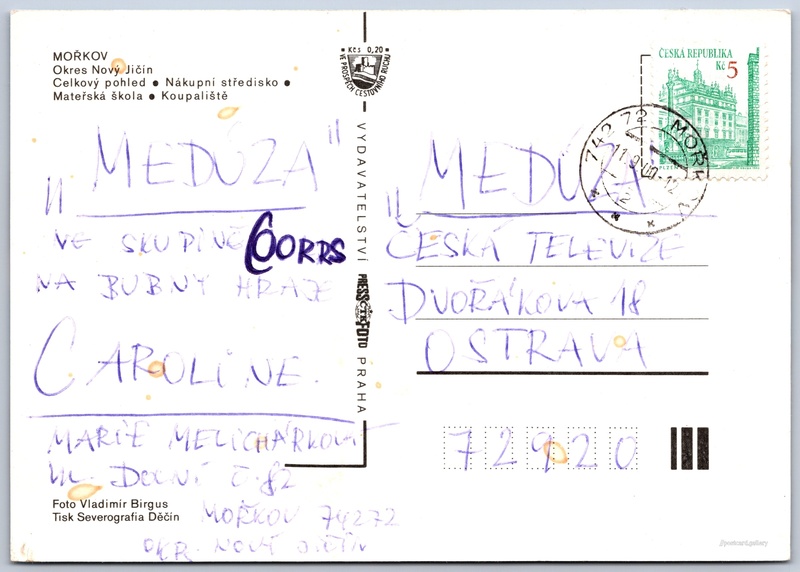 MOŘKOV
Okres Nový Jičín
Celkový pohled • Nákupní středisko •
Mateřská škola • Koupaliště
"MEDÚZA"
VE SKUPINĚ CORRS
NA BUBNY HRAJE
CAROLINE.
MARIE MELICHÁRKOVÁ
UL. DOLNÍ Č. 82
Foto Vladimír Birgus
Tisk Severografia Děčín
MOŘKOV 74272
OKR. NOVÝ JIČÍN
Kčs 0,20
VE PROSPĚCH CESTOVNÍHO RUCHU
VYDAVATELSTVÍ
PRESSFOTO
ČTK
PRAHA
ČESKÁ REPUBLIKA
Kč 5
742 72 MOŘKOV
"MEDÚZA"
ČESKÁ TELEVIZE
DVOŘÁKOVA 18
OSTRAVA
72920